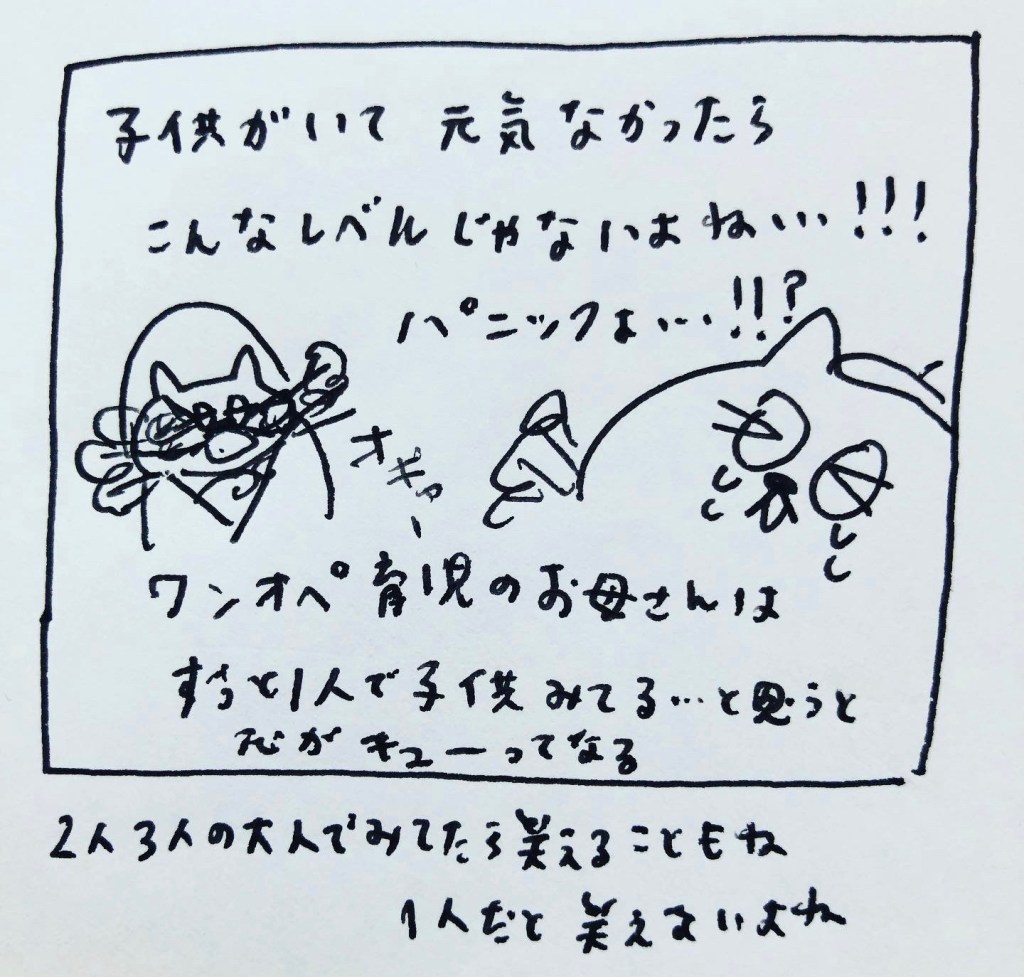 子供がいて 元気なかったら
こんなレベルじゃないよね…!!!
パニックよ…!!?
オギャー
ワンオペ育児のお母さんは
ずっと1人で子供みてる…と思うと
心がキューってなる
2人3人の大人でみてたら笑えることもね
1人だと笑えないよね